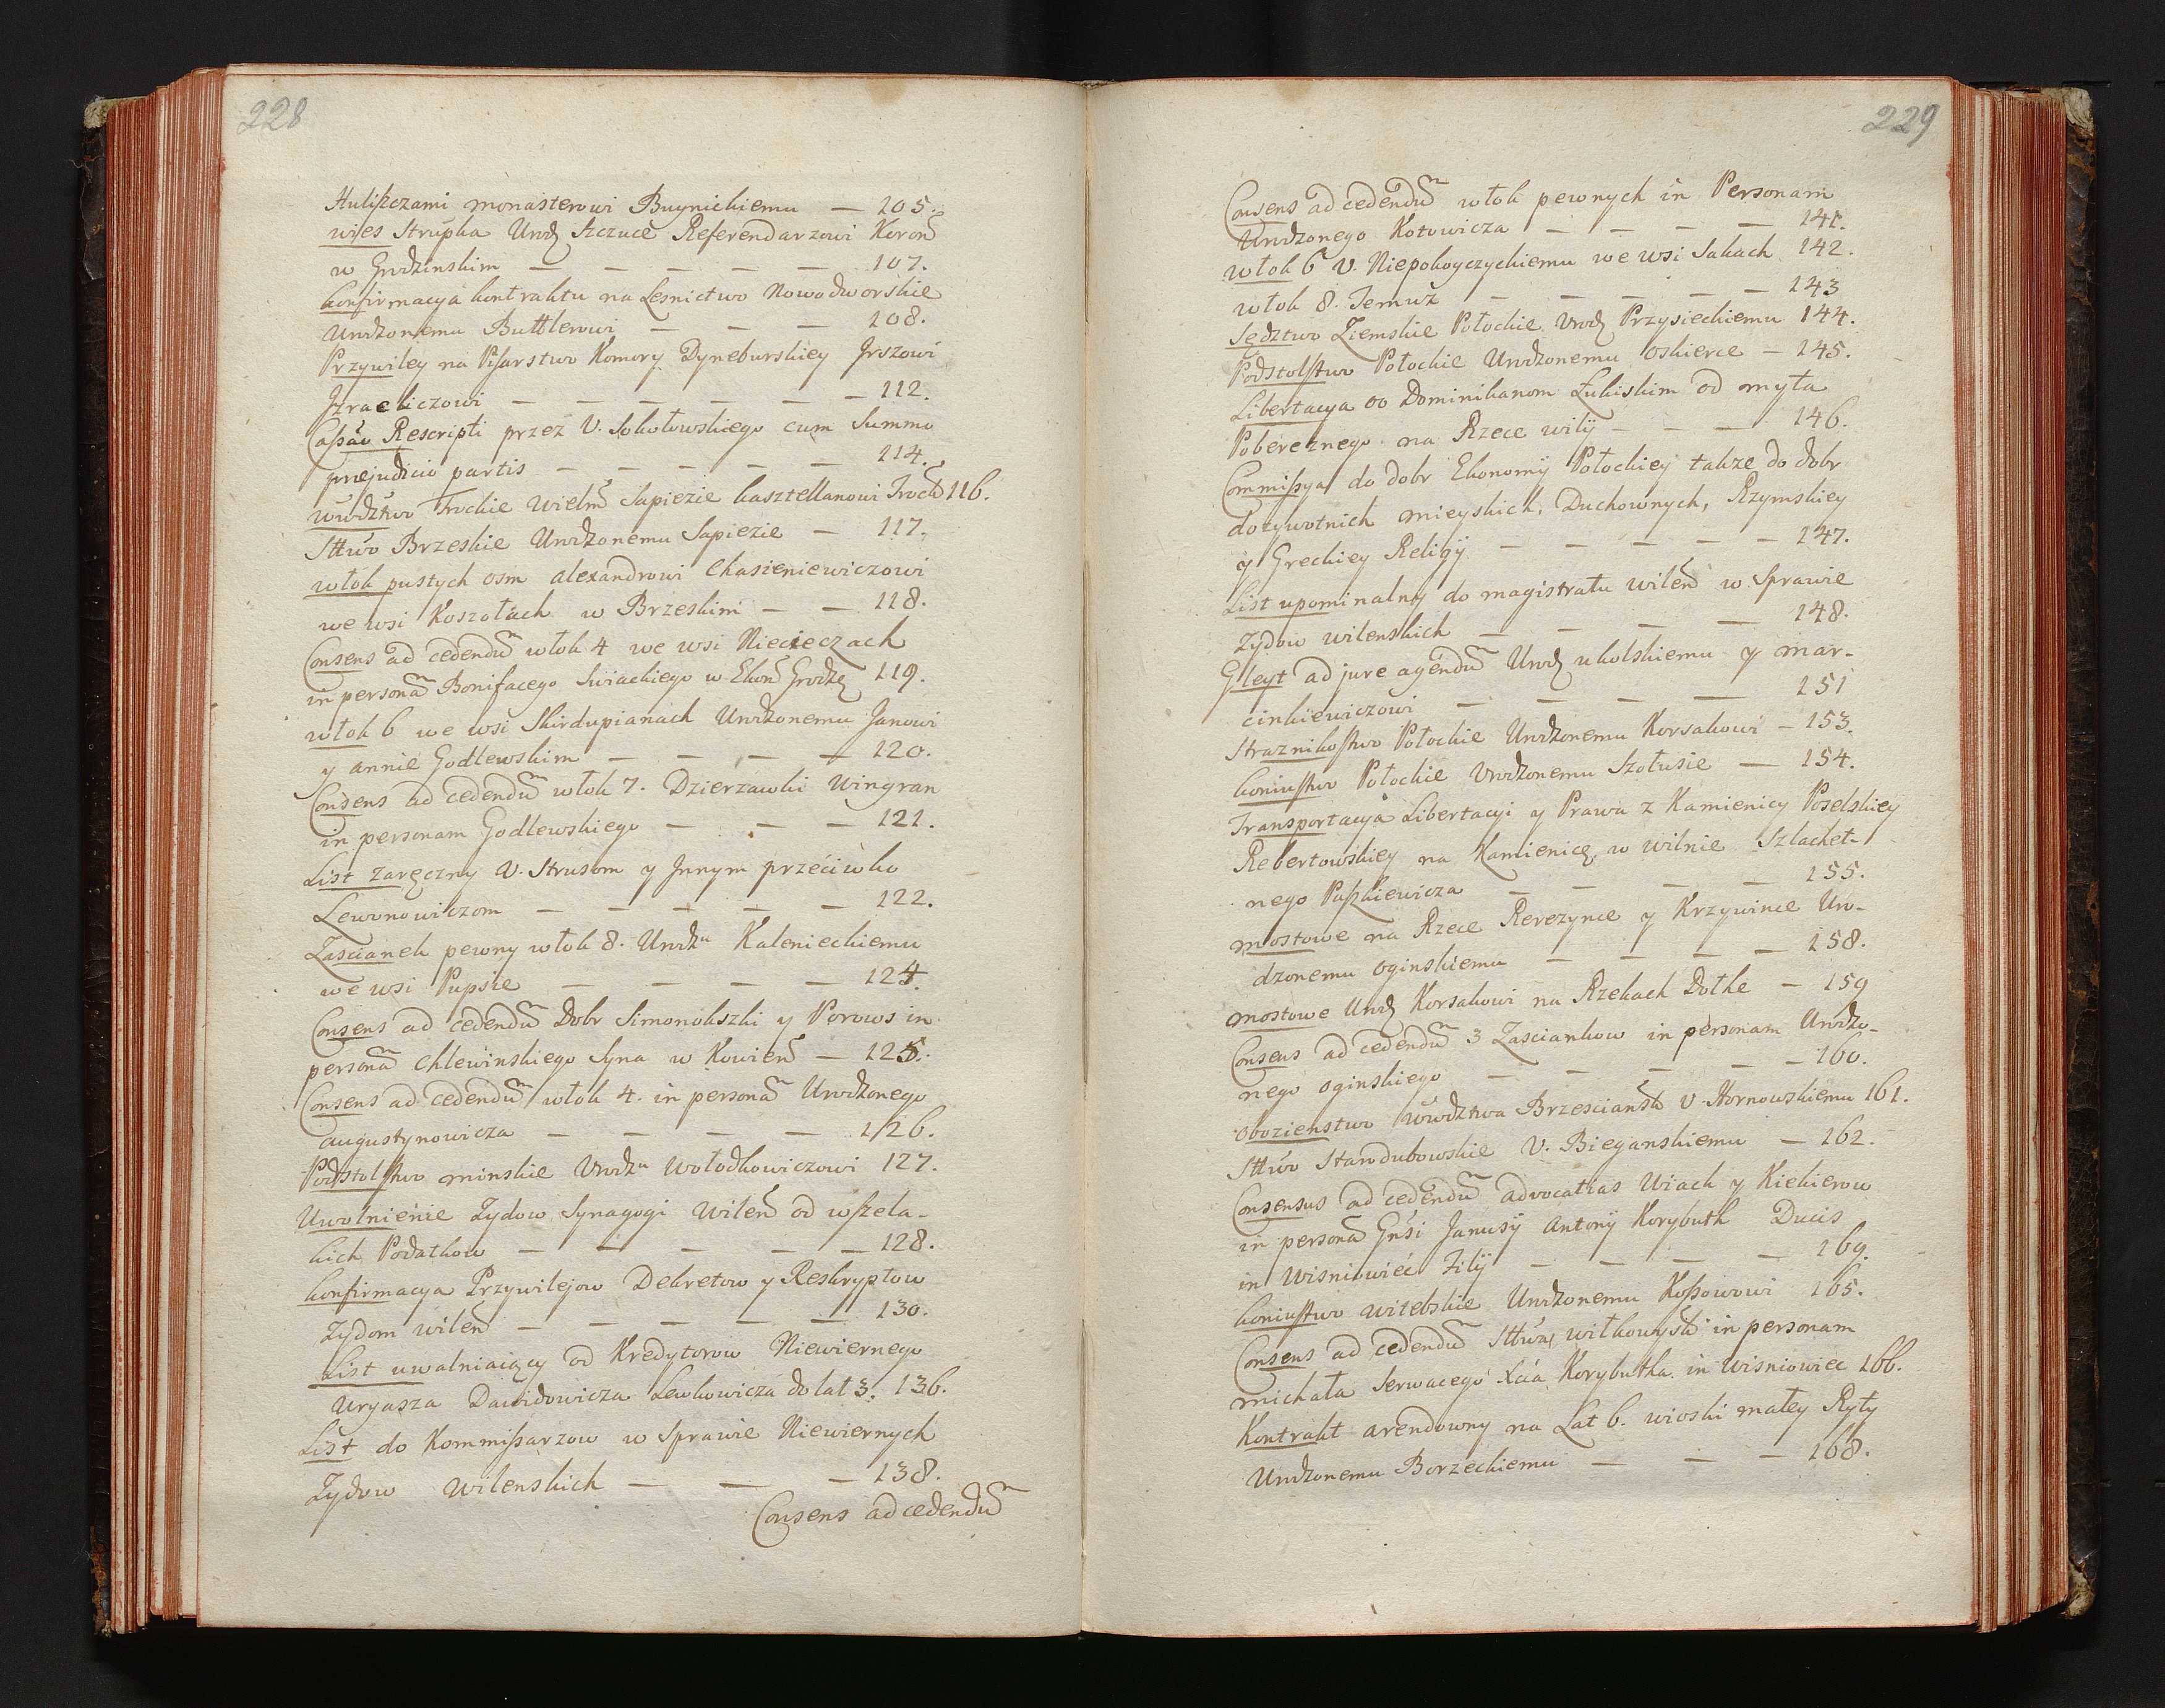 228
Huliszczami monasterowi Buynickiemu — 105.
wies Strupka Urodz Szczuce Referendarzowi Koron
w Grodzinskim — — — — — 107.
konfirmacya kontraktu na Lesnictwo Nowodworskie
Urodzonemu Buttlerowi — — — 108.
Przywiley na Pisarstwo Komory Dyneburskiey Jrszowi
Jzraeliczowi — — — — — — 112.
Cassao Rescripti przez U. Sokołowskiego cum Summo
prejudicio partis — — — — — 114.
wwdztwo Trockie wielm Sapiezie kasztellanowi Trock 116.
Sttwo Brzeskie Urodzonemu Sapiezie — 117.
włok pustych osm alexandrowi Chasieniewiczowi
we wsi Koszołach w Brzeskim — — 118.
Consens ad cedendum włok 4 we wsi Niecieczach
in personam Bonifacego Swiackiego w Ekon Grodz 119.
włok 6 we wsi Skirdupianach Urodzonemu Janowi
y annie Godlewskim — — — — 120.
Consens ad cedendum włok 7. Dzierzawki Wingran
in personam Godlewskiego — — — 121.
List Zaręczny U. Strusom y Jnnym przeciwko
Lewonowiczom — — — — — 122.
Zascianek pewny włok 8. Urodzu Kalenieckiemu
we wsi Pupsie — — — — 124.
Consens ad cedendum Dobr Simonokszki y Porows in
personam Chlewinskiego Syna w Kowien — 125.
Consens ad cedendum włok 4. in personam Urodzonego
augustynowicza — — — — 126.
Podstolstwo minskie Urodzu Wołodkowiczowi 127.
Uwolnienie Zydow Synagogi Wilen od wszela-
kich Podatkow — — — — — 128.
konfirmacya Przywilejow Dekretow y Reskryptow
Zydom wilen — — — — — 130.
List uwalniaiący od Kredytorow Niewiernego
Uryasza Dawidowicza Lewkowicza do lat 3. 136.
List do Kommissarzow w Sprawie Niewiernych
Zydow Wilenskich — — — 138.
Consens ad cedendum
229
Consens ad cedendum włok pewnych in Personam
Urodzonego Kotowicza — — — — 141.
włok 6 U. Niepokoyczyckiemu we wsi Sakach 142.
włok 8. Temuz — — — — — 143
Sędztwo Ziemskie Połockie Urodz Przysieckiemu 144.
Podstolstwo Połockie Urodzonemu Oskierce — 145.
Libertacya oo Dominikanom Łukiskim od myta
Poboreznego na Rzece wilij — — — 146.
Commissya do dobr Ekonomij Połockiey takze do dobr
dozywotnich mieyskich, Duchownych, Rzymskiey
y Greckiey Religij — — — — — 147.
List upominalny do magistratu wilen w Sprawie
Zydow wilenskich — — — — 148.
Gleyt ad jure agendum Urodz ukolskiemu y mar-
cinkiewiczowi — — — — 151
Straznikostwo Połockie Urodzonemu Korsakowi — 153.
koniustwo Połockie Urodzonemu Szołusie — 154.
Transportacya Libertacyi y Prawa z Kamienicy Poselskiey
Rebertowskiey na Kamienicę w wilnie Szlachet-
nego Paszkiewicza — — — — 155.
mostowe na Rzece Rerezynce y Krzywince Uro-
dzonemu Oginskiemu — — — — 158.
mostowe Urodz Korsakowi na Rzekach Dotke — 159
Consens ad cedendum 3 Zasciankow in personam Urodzo-
nego Oginskiego — — — — — 160.
Obozienstwo wwdztwa Brzescians U Hornowskiemu 161.
Sttwo Starodubowskie U. Bieganskiemu — 162.
Consensus ad cedendum advocatias Uiach y Kiekierow
in personam Gnsi Janusij Antonij Korybuth Ducis
in Wisniowiec Filij — — — — 169.
koniustwo witebskie Urodzonemu Kossowowi 165.
Consens ad cedendum Sttwa wiłkowysk in personam
michała Serwacego Xcia Korybutha in Wisniowiec 166.
Kontrakt arendowny na Lat 6. wioski małey Ryty
Urodzonemu Borzeckiemu — — — 168.